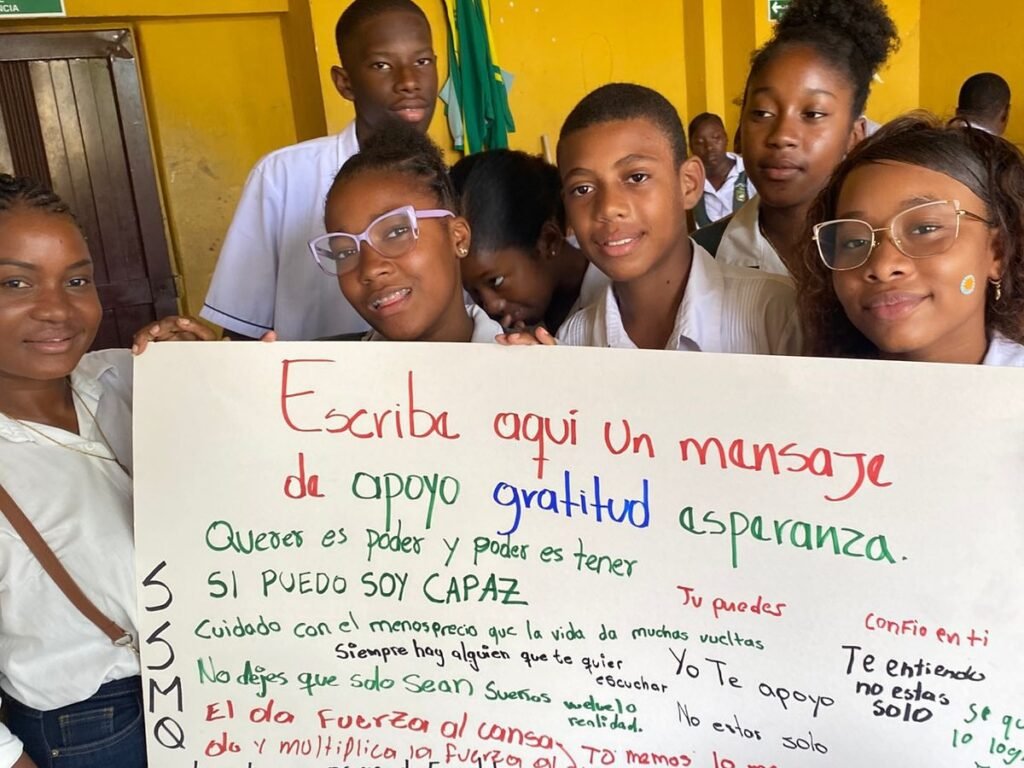 NCIA
Escriba aquí un mensaje
de apoyo gratitud esperanza.
Querer es poder y poder es tener
SI PUEDO SOY CAPAZ
Tu puedes
confio en ti
Cuidado con el menosprecio que la vida da muchas vueltas
Siempre hay alguien que te quier
escuchar
Yo Te apoyo
Te entiendo
no estas
solo
No dejes que solo sean sueños
realidad.
No estas solo
Se qu
lo log
El da Fuerza al cansa
do y multiplica la fuerza al
TQ mamos
SSMQ